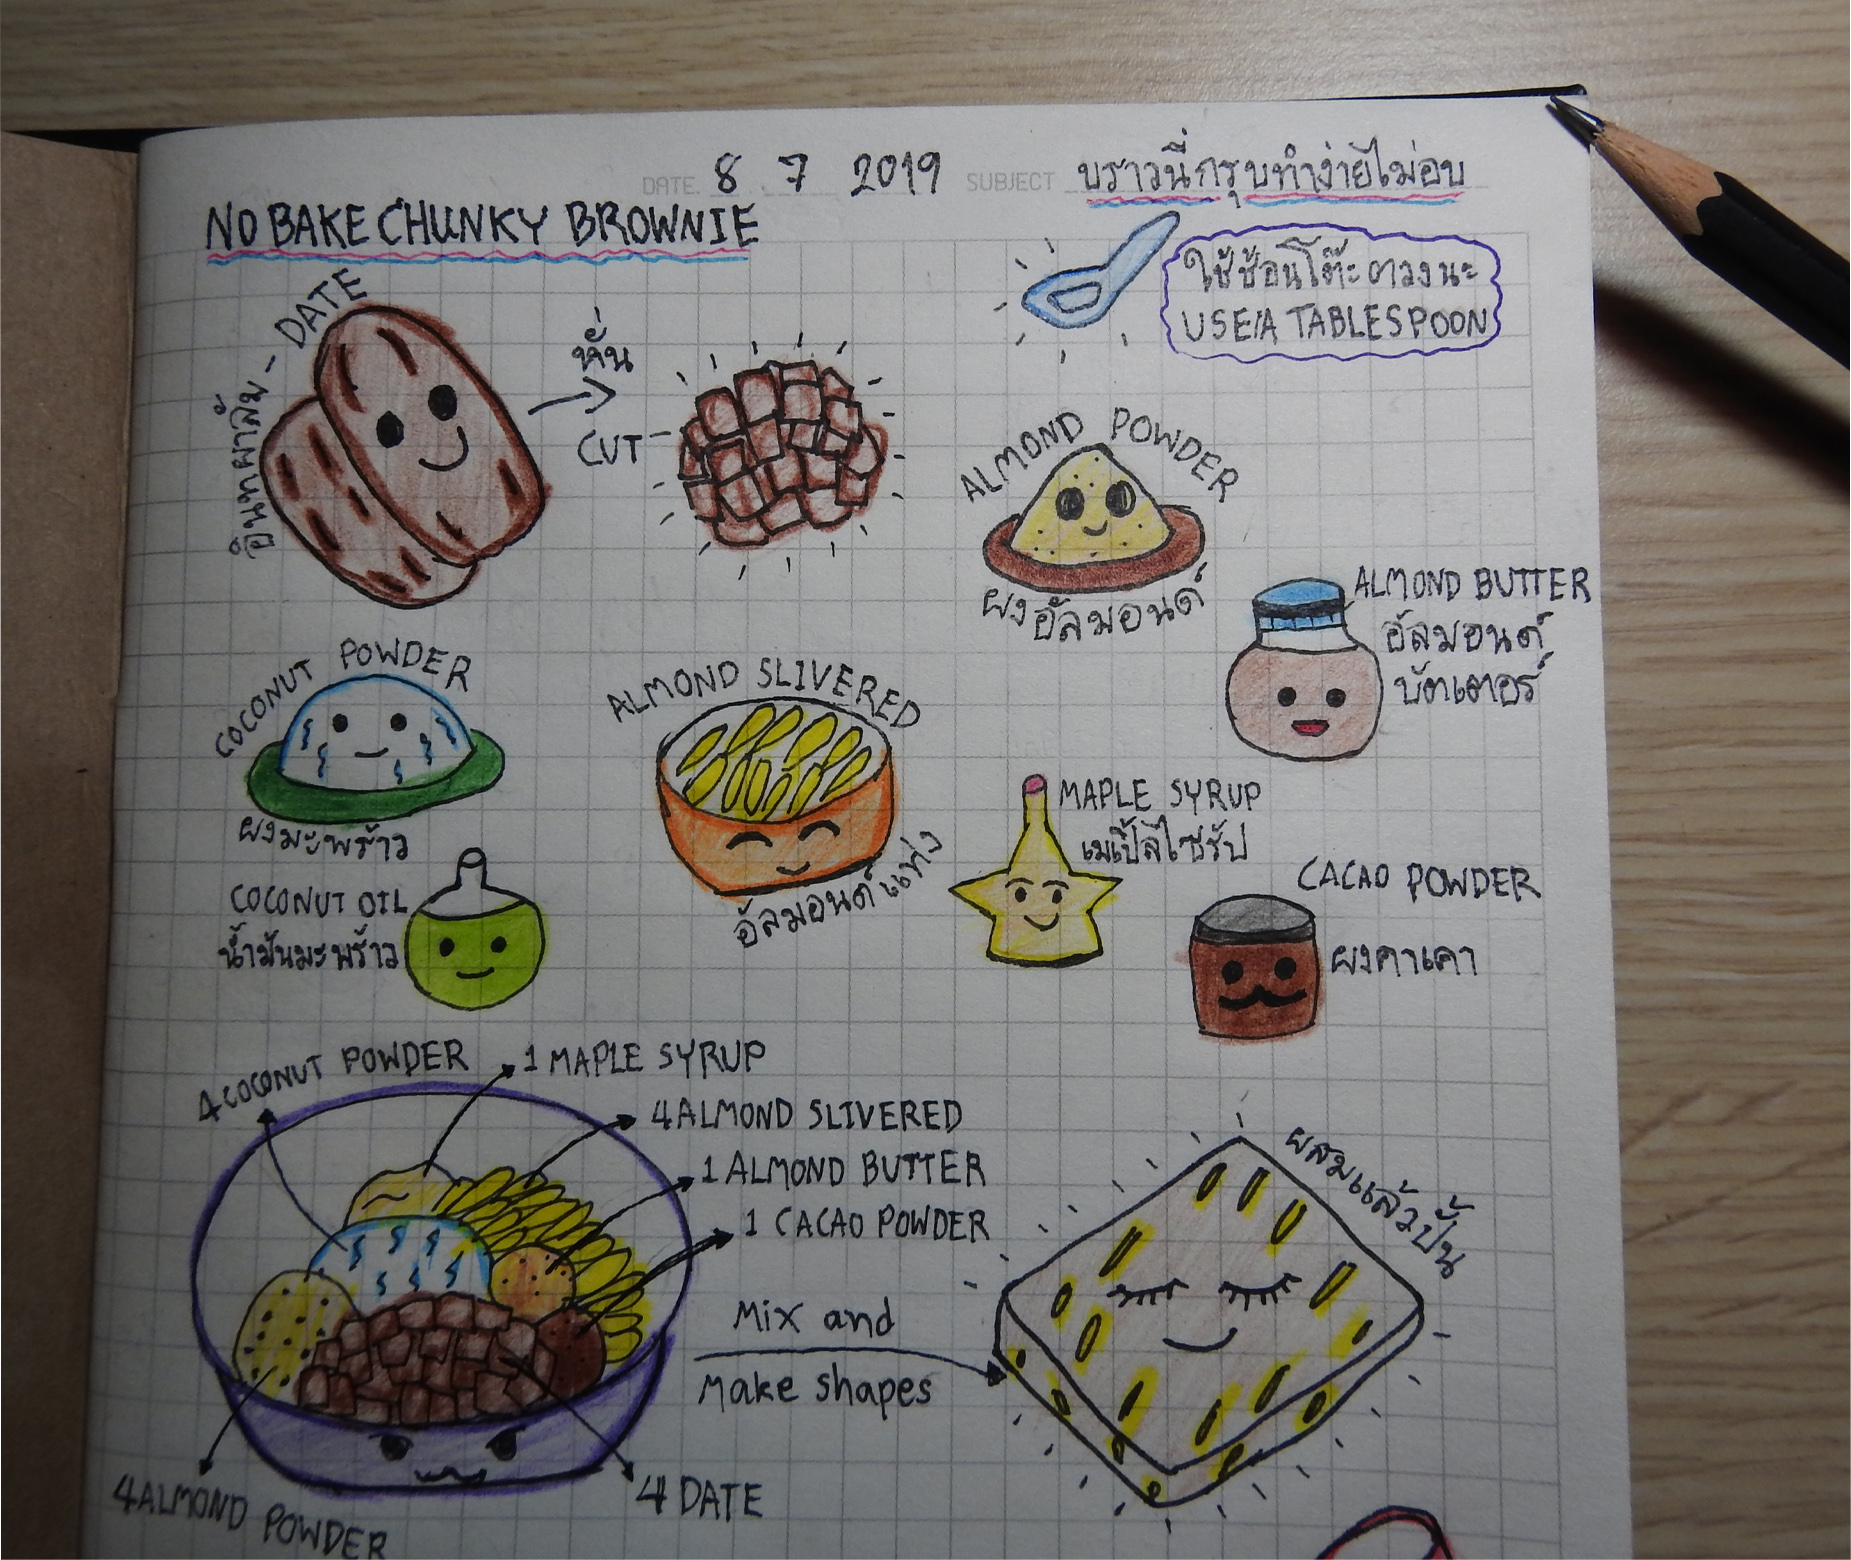 DATE 8 7 2019 SUBJECT บราวนี่กรุบทำง่ายไม่อบ
NO BAKE CHUNKY BROWNIE
ใช้ช้อนโต๊ะตวงนะ
USE A TABLESPOON
อินทผาลัม - DATE
หั่น
CUT
ALMOND POWDER
ผงอัลมอนด์
ALMOND BUTTER
อัลมอนด์
บัตเตอร์
COCONUT POWDER
ผงมะพร้าว
ALMOND SLIVERED
อัลมอนด์แท่ง
MAPLE SYRUP
เมเปิ้ลไซรัป
COCONUT OIL
น้ำมันมะพร้าว
CACAO POWDER
ผงคาเคา
4 COCONUT POWDER
1 MAPLE SYRUP
4 ALMOND SLIVERED
1 ALMOND BUTTER
1 CACAO POWDER
Mix and
Make shapes
ผสมแล้วปั้น
4 ALMOND POWDER
4 DATE